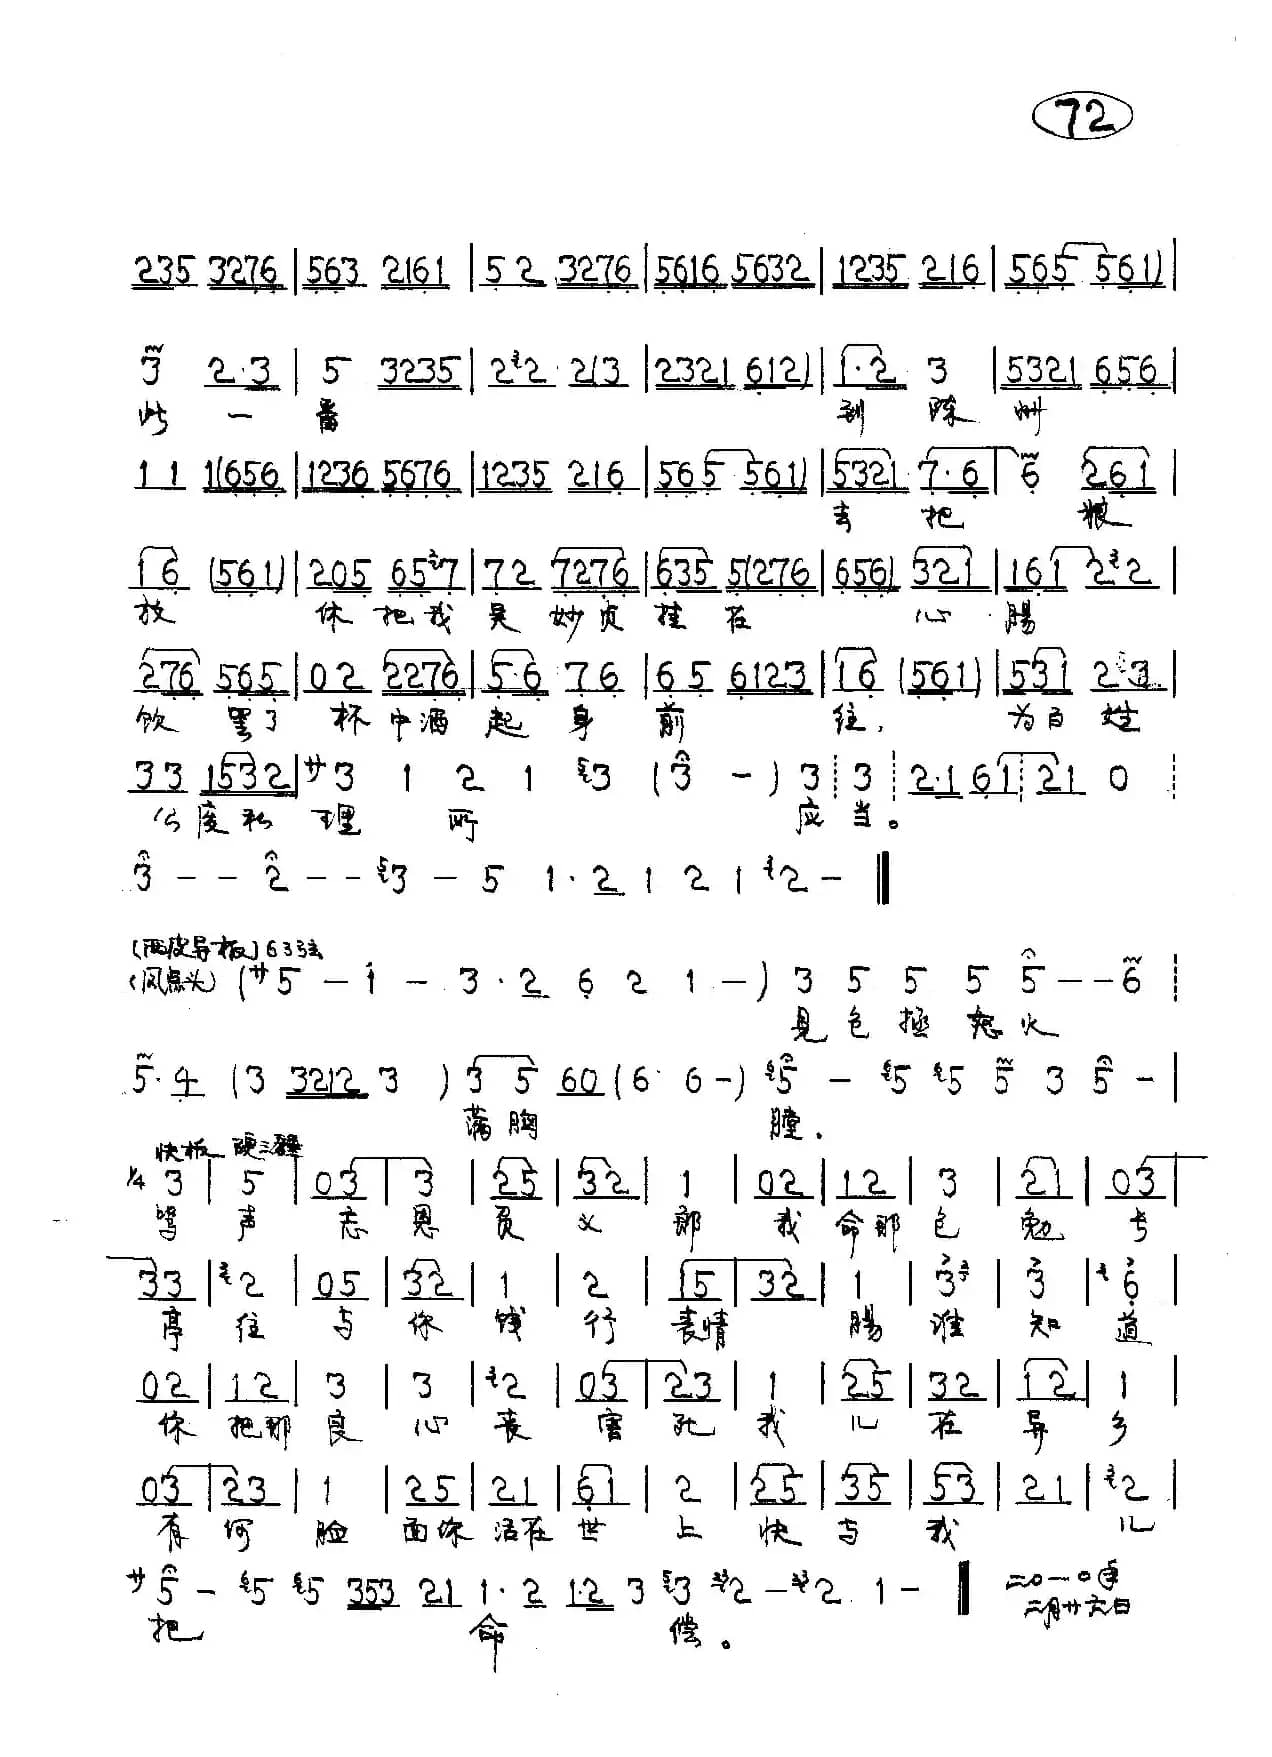 72
235 3276 | 563 2161 | 52 3276 | 5616 5632 | 1235 216 | 565 561) |
3 2·3 | 5 3235 | 2 2 2(3 | 2321 612) | 1·2 3 | 5321 656 |
此 一 番 到 陈 州
11 1(656 | 1236 5676 | 1235 216 | 565 561) | 5321 7·6 | 6 261 |
去 把 粮
16 (561) | 205 657 | 72 7276 | 635 5(276 | 656) 321 | 161 22 |
放 休 把 我 吴 妙 贞 挂 在 心 腸
276 565 | 02 2276 | 5·6 76 | 65 6123 | 16 (561) | 531 2 3 |
饮 罢 了 杯 中 酒 起 身 前 往, 为 百 姓
33 1532 | 廿3 1 2 1 3 (3 -) 3 ┊ 3 ┊ 2·1 61 ┊ 21 0 ┊
公 废 私 理 所 应 当。
3 - - 2 - - 3 - 5 1·2 1 2 1 2 - ‖
(西皮导板) 63弦
(风点头) (廿5 - i - 3·2 6 2 1 -) 3 5 5 5 5 - - 6 ┊
見 包 拯 怒 火
5·4 (3 3212 3 ) 3 5 60 (6· 6 -) 5 - 5 5 5 3 5 - |
满 胸 膛.
快板
1/4 3 | 5 | 03 | 3 | 25 | 32 | 1 | 02 | 12 | 3 | 21 | 03 |
骂 声 忘 恩 负 义 郎 我 命 那 包 勉 长
33 | 2 | 05 | 32 | 1 | 2 | 15 | 32 | 1 | 3 | 3 | 6 |
亭 往 与 你 饯 行 表 情 腸 谁 知 道
02 | 12 | 3 | 3 | 2 | 03 | 23 | 1 | 25 | 32 | 12 | 1 |
你 把 那 良 心 丧 害 死 我 儿 在 异 乡
03 | 23 | 1 | 25 | 21 | 61 | 2 | 25 | 35 | 53 | 21 | 2 |
有 何 脸 面 你 活 在 世 上 快 与 我 儿
廿5 - 5 5 353 21 1·2 1·2 3 3 2 - 2 1 - ‖ 二〇一〇年
把 命 偿。 二月廿六日